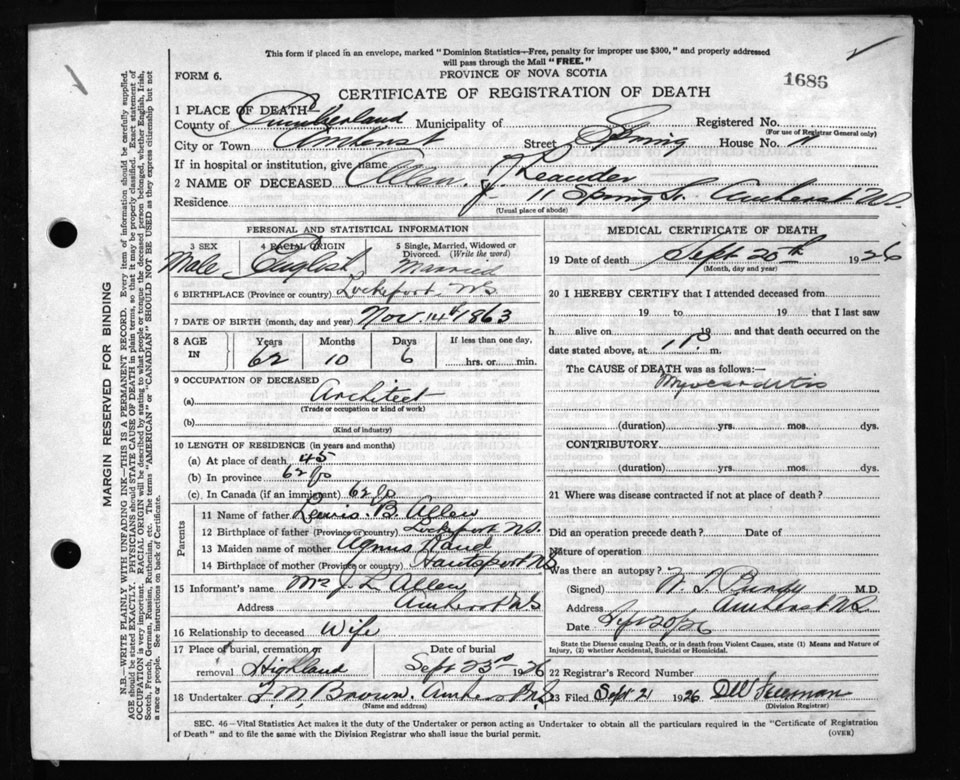 This form if placed in an envelope, marked "Dominion Statistics—Free, penalty for improper use $300," and properly addressed
will pass through the Mail "FREE."
FORM 6.
PROVINCE OF NOVA SCOTIA
1686
CERTIFICATE OF REGISTRATION OF DEATH
1 PLACE OF DEATH—
County of Cumberland Municipality of Registered No.
(For use of Registrar General only)
City or Town Amherst Street Spring House No. 11
If in hospital or institution, give name
2 NAME OF DECEASED Allen, J. Leander
Residence 11 Spring St. Amherst N.S.
(Usual place of abode)
PERSONAL AND STATISTICAL INFORMATION
3 SEX 4 RACIAL ORIGIN 5 Single, Married, Widowed or Divorced. (Write the word)
Male English Married
6 BIRTHPLACE (Province or country) Lockeport, N.S.
7 DATE OF BIRTH (month, day and year) Nov. 14th 1863
8 AGE IN Years Months Days If less than one day,
62 10 6 hrs. or min.
9 OCCUPATION OF DECEASED
(a) Architect
(Trade or occupation or kind of work)
(b)
(Kind of industry)
10 LENGTH OF RESIDENCE (in years and months)
(a) At place of death 45
(b) In province 62 yrs
(c) In Canada (if an immigrant) 62 yrs
Parents
11 Name of father Lewis. B. Allen
12 Birthplace of father (Province or country) Lockeport N.S.
13 Maiden name of mother Agnus Rand
14 Birthplace of mother (Province or country) Hantsport N.S.
15 Informant's name Mrs J. L Allen
Address Amherst N.S
16 Relationship to deceased Wife
17 Place of burial, cremation or removal Highland Date of burial Sept 23rd 1926
18 Undertaker F. M. Brown. Amherst N.S
(Name and address)
MEDICAL CERTIFICATE OF DEATH
19 Date of death Sept 20th 1926
(Month, day and year)
20 I HEREBY CERTIFY that I attended deceased from
19 to 19 that I last saw
h alive on 19 and that death occurred on the
date stated above, at 1 P. m.
The CAUSE of DEATH was as follows:—
Myocarditis
(duration) yrs. mos. dys.
CONTRIBUTORY
(duration) yrs. mos. dys.
21 Where was disease contracted if not at place of death?
Did an operation precede death? Date of
Nature of operation
Was there an autopsy?
(Signed) M.D.
Address Amherst N.S.
Date Sept 20/26
State the Disease causing Death, or in death from Violent Causes, state (1) Means and Nature of
Injury, (2) whether Accidental, Suicidal or Homicidal.
22 Registrar's Record Number
23 Filed Sept 21 1926 D W Freeman
(Division Registrar)
SEC. 46—Vital Statistics Act makes it the duty of the Undertaker or person acting as Undertaker to obtain all the particulars required in the "Certificate of Registration
of Death" and to file the same with the Division Registrar who shall issue the burial permit.
(OVER)
MARGIN RESERVED FOR BINDING
N.B.—WRITE PLAINLY WITH UNFADING INK—THIS IS A PERMANENT RECORD. Every item of information should be carefully supplied.
AGE should be stated EXACTLY. PHYSICIANS should STATE CAUSE OF DEATH in plain terms, so that it may be properly classified. Exact statement of
OCCUPATION is very important. RACIAL ORIGIN will be described by stating to what people or tongue the deceased person belonged, whether English, Irish,
Scotch, French, German, Russian, Ruthenian, etc. The terms "AMERICAN" or "CANADIAN" SHOULD NOT BE USED as they express citizenship but not
a race or people. See instructions on back of Certificate.